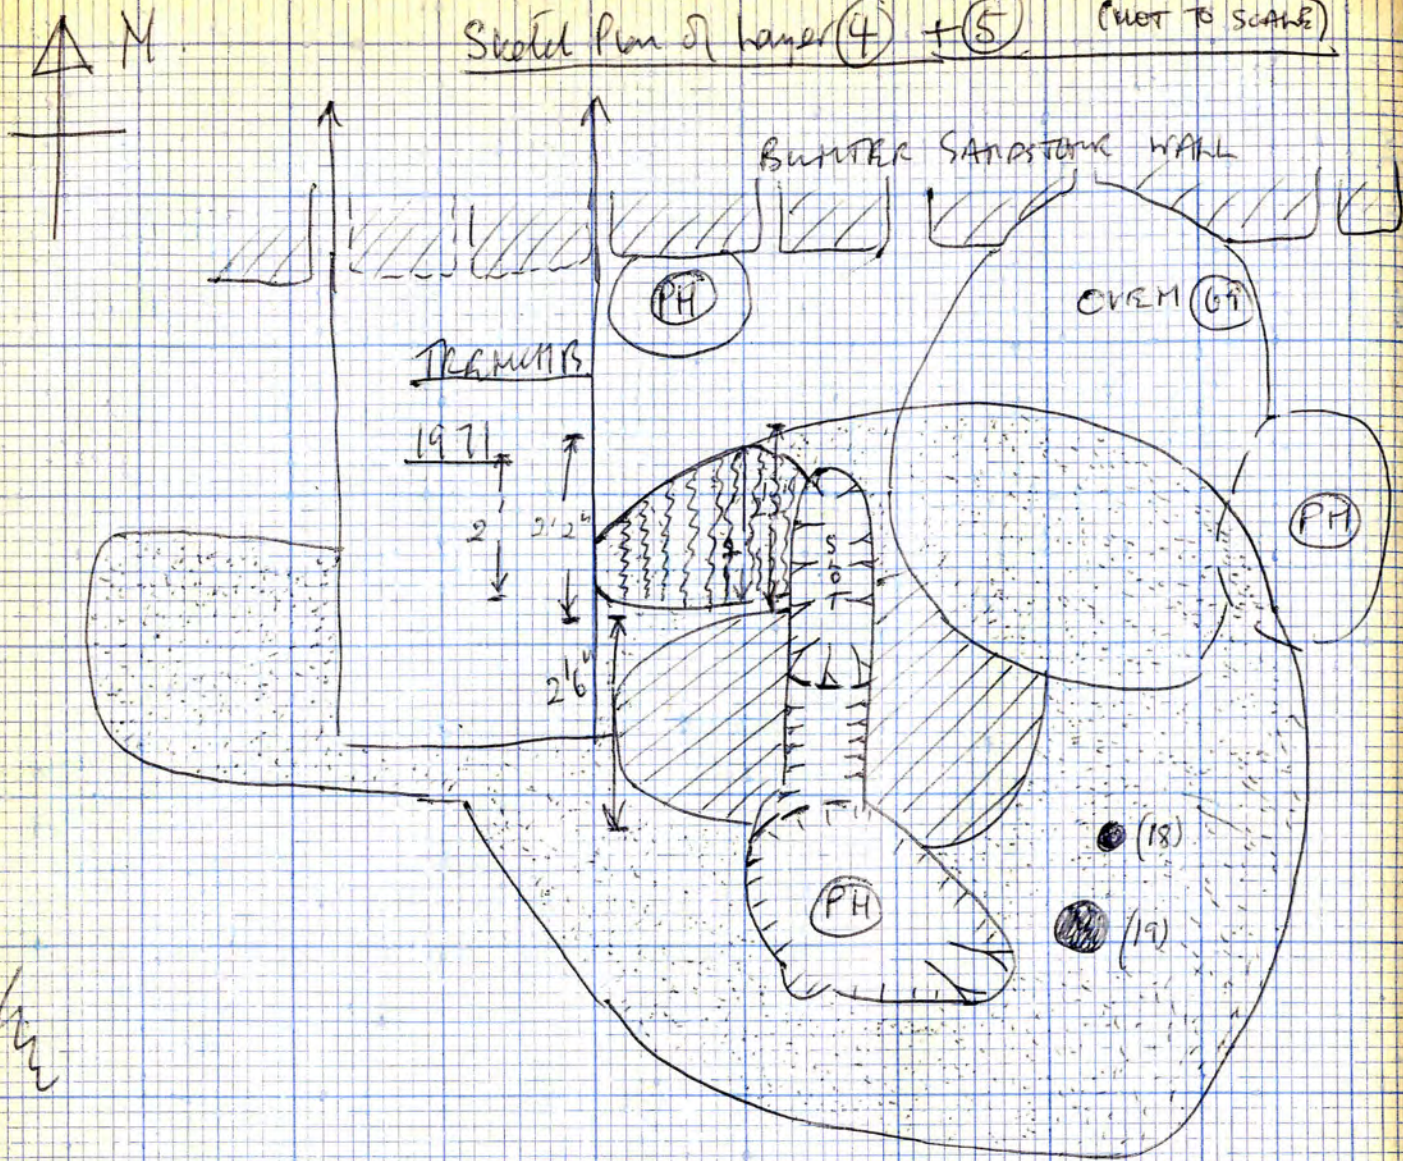 N
Sketch Plan of Layer (4) + (5) (NOT TO SCALE)
BUNTER SANDSTONE WALL
PH
OVEN
TRENCH B
1971
2'
2'2"
2'6"
SLOT
PH
PH
(18)
(19)